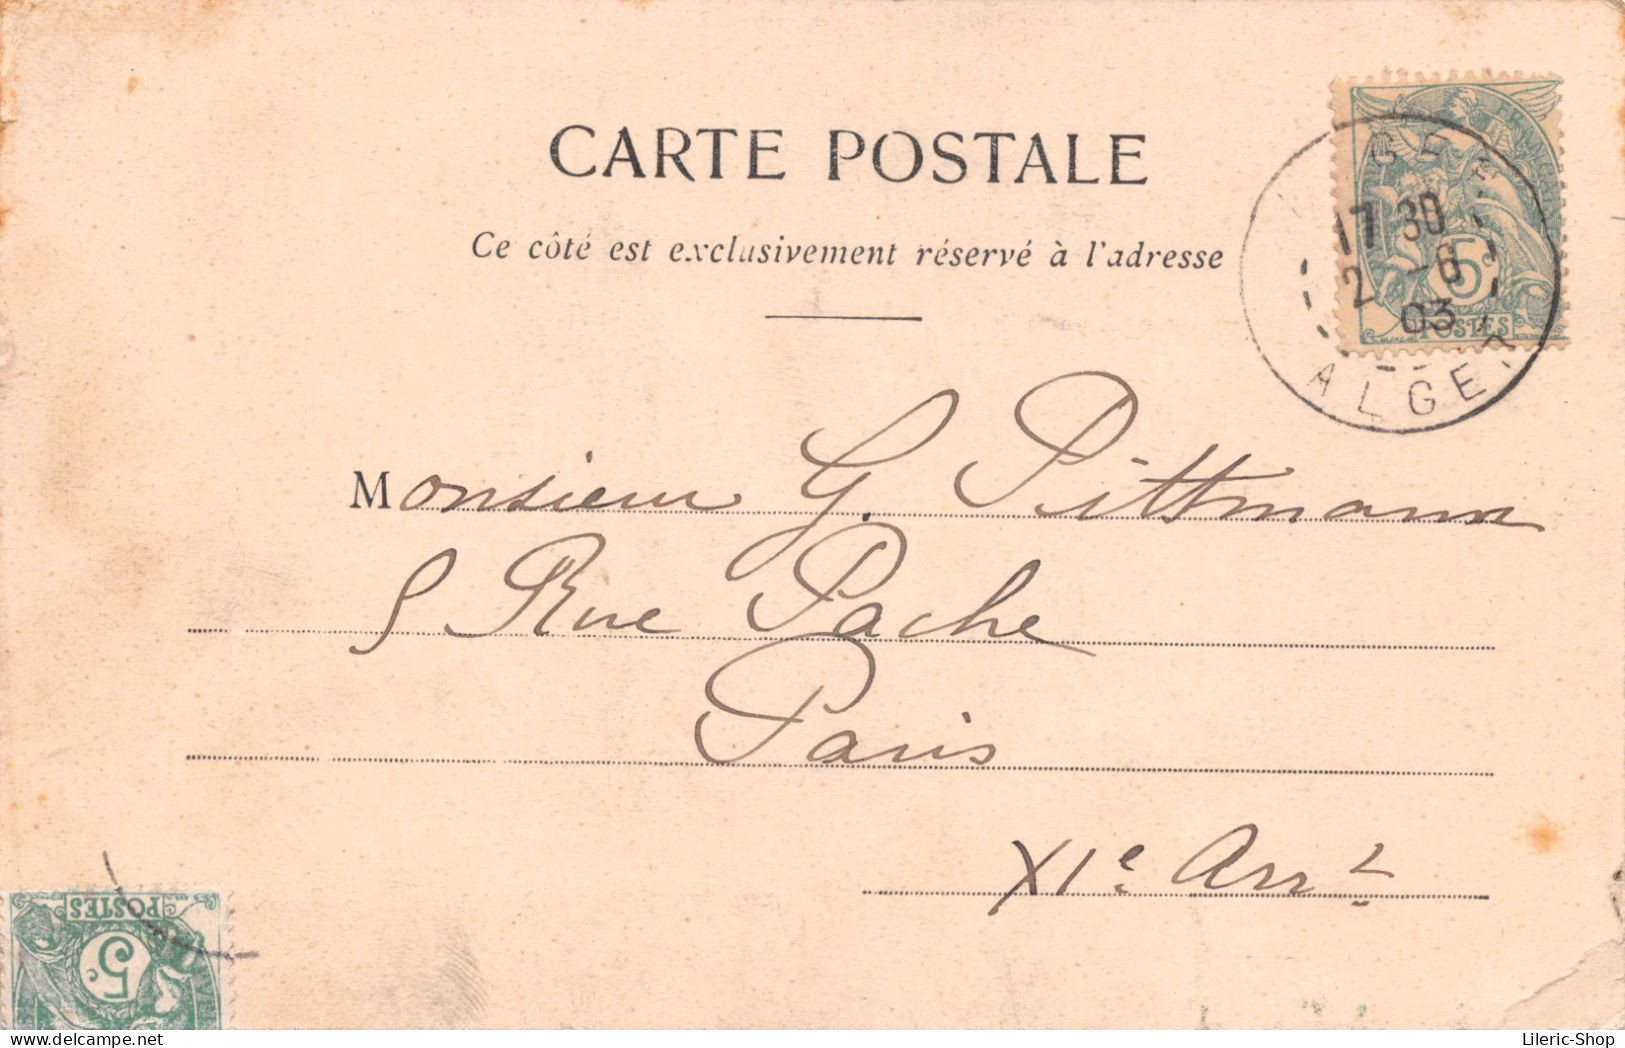 CARTE POSTALE
Ce côté est exclusivement réservé à l'adresse
17 30
2 -6
03
ALGER
5
POSTES
Monsieur G. Pittmann
5 Rue Pache
Paris
XIe Arrt
POSTES
5c
Lileric-Shop